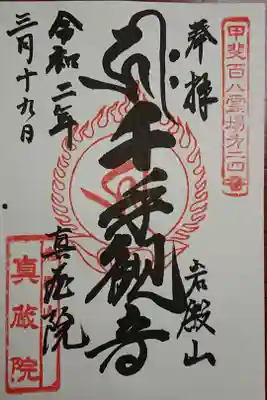 甲斐百八霊場第二四番
奉拝
岩殿山
千手観音
真蔵院
令和二年
三月十九日
真蔵院